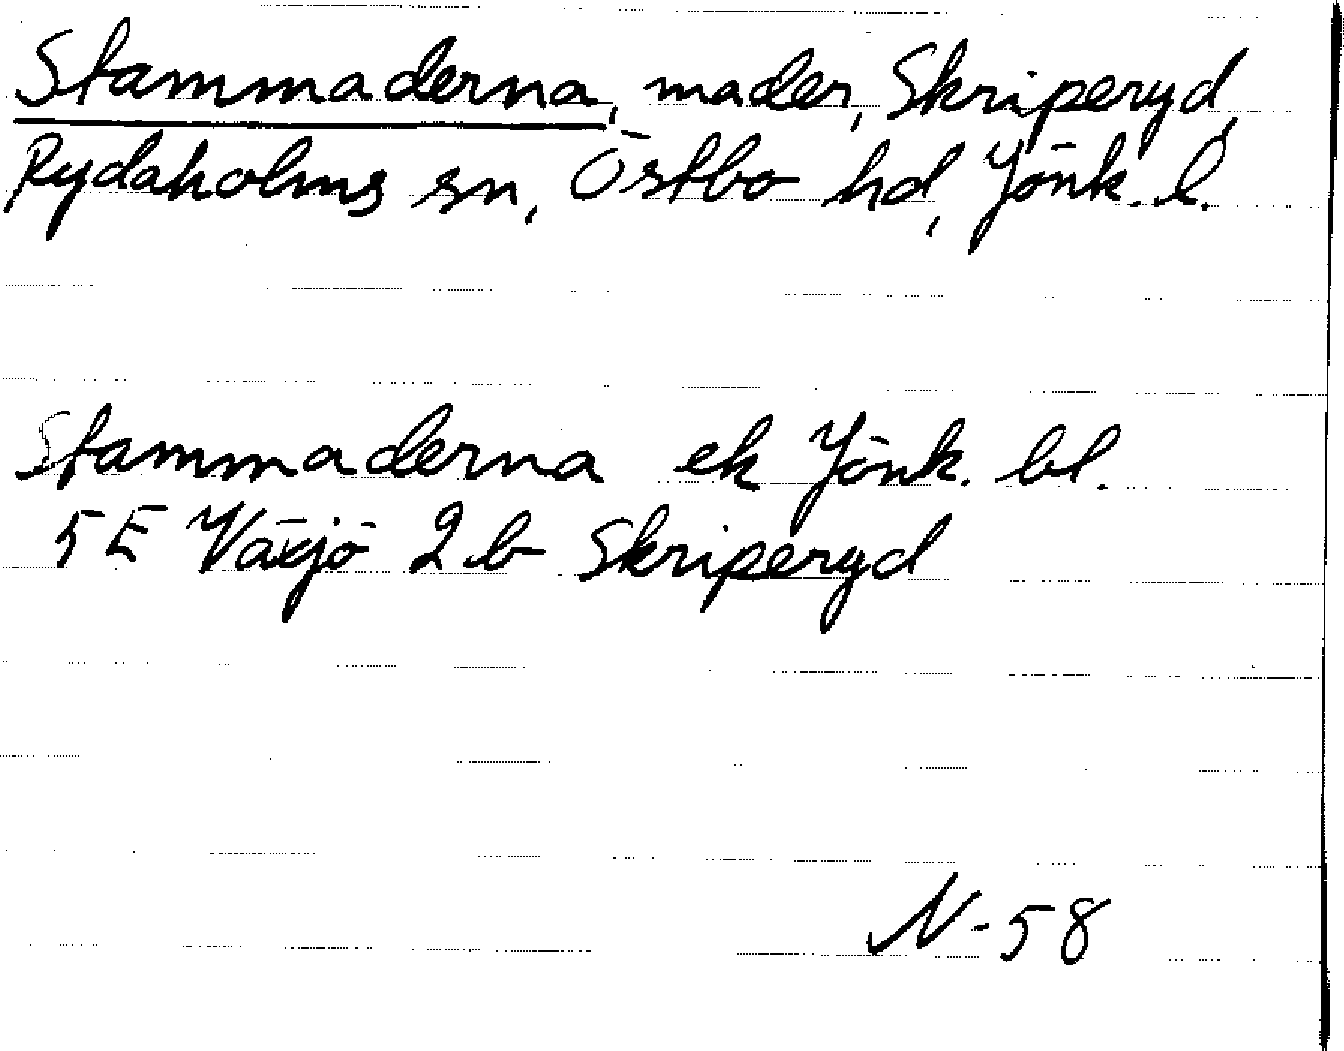 Stammaderna, mader, Skriperyd,
Rydaholms sn, Östbo hd, Jönk. l.
Stammaderna ek Jönk. bl.
5E Växjö 2b Skriperyd
N-58